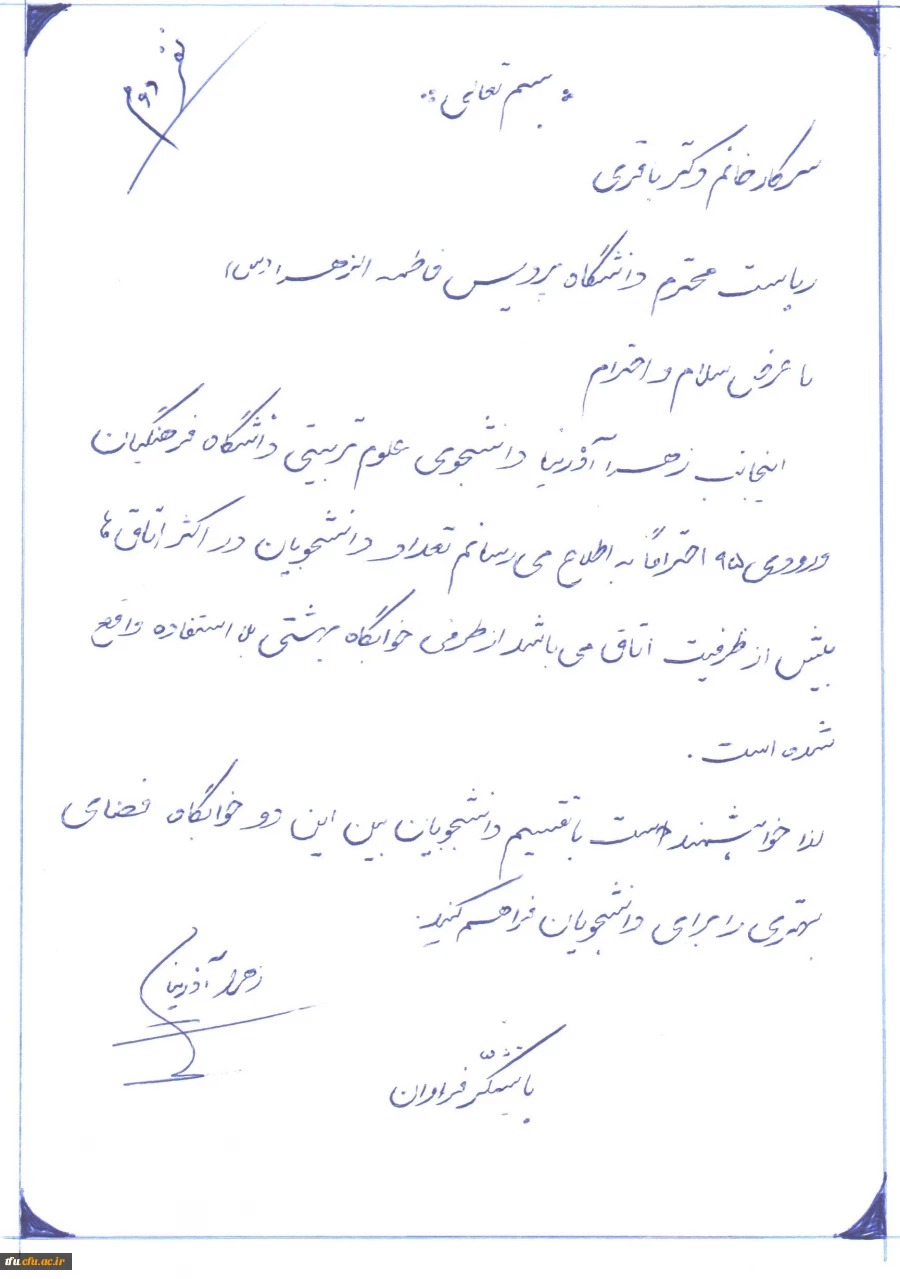 بسم تعالی
سرکار خانم دکتر باقری
ریاست محترم دانشگاه پردیس فاطمه الزهرا (س)
با عرض سلام و احترام
اینجانب زهرا آذرنیا دانشجوی علوم تربیتی دانشگاه فرهنگیان
ورودی ۹۵ احتراماً به اطلاع می رسانم تعداد دانشجویان در اکثر اتاق ها
بیش از ظرفیت اتاق می باشد از طرفی خوابگاه بهشتی بلا استفاده واقع
شده است .
لذا خواهشمند است با تقسیم دانشجویان بین این دو خوابگاه فضای
بهتری را برای دانشجویان فراهم کنید.
زهرا آذرنیا
با تشکّر فراوان
tfu.cfu.ac.ir